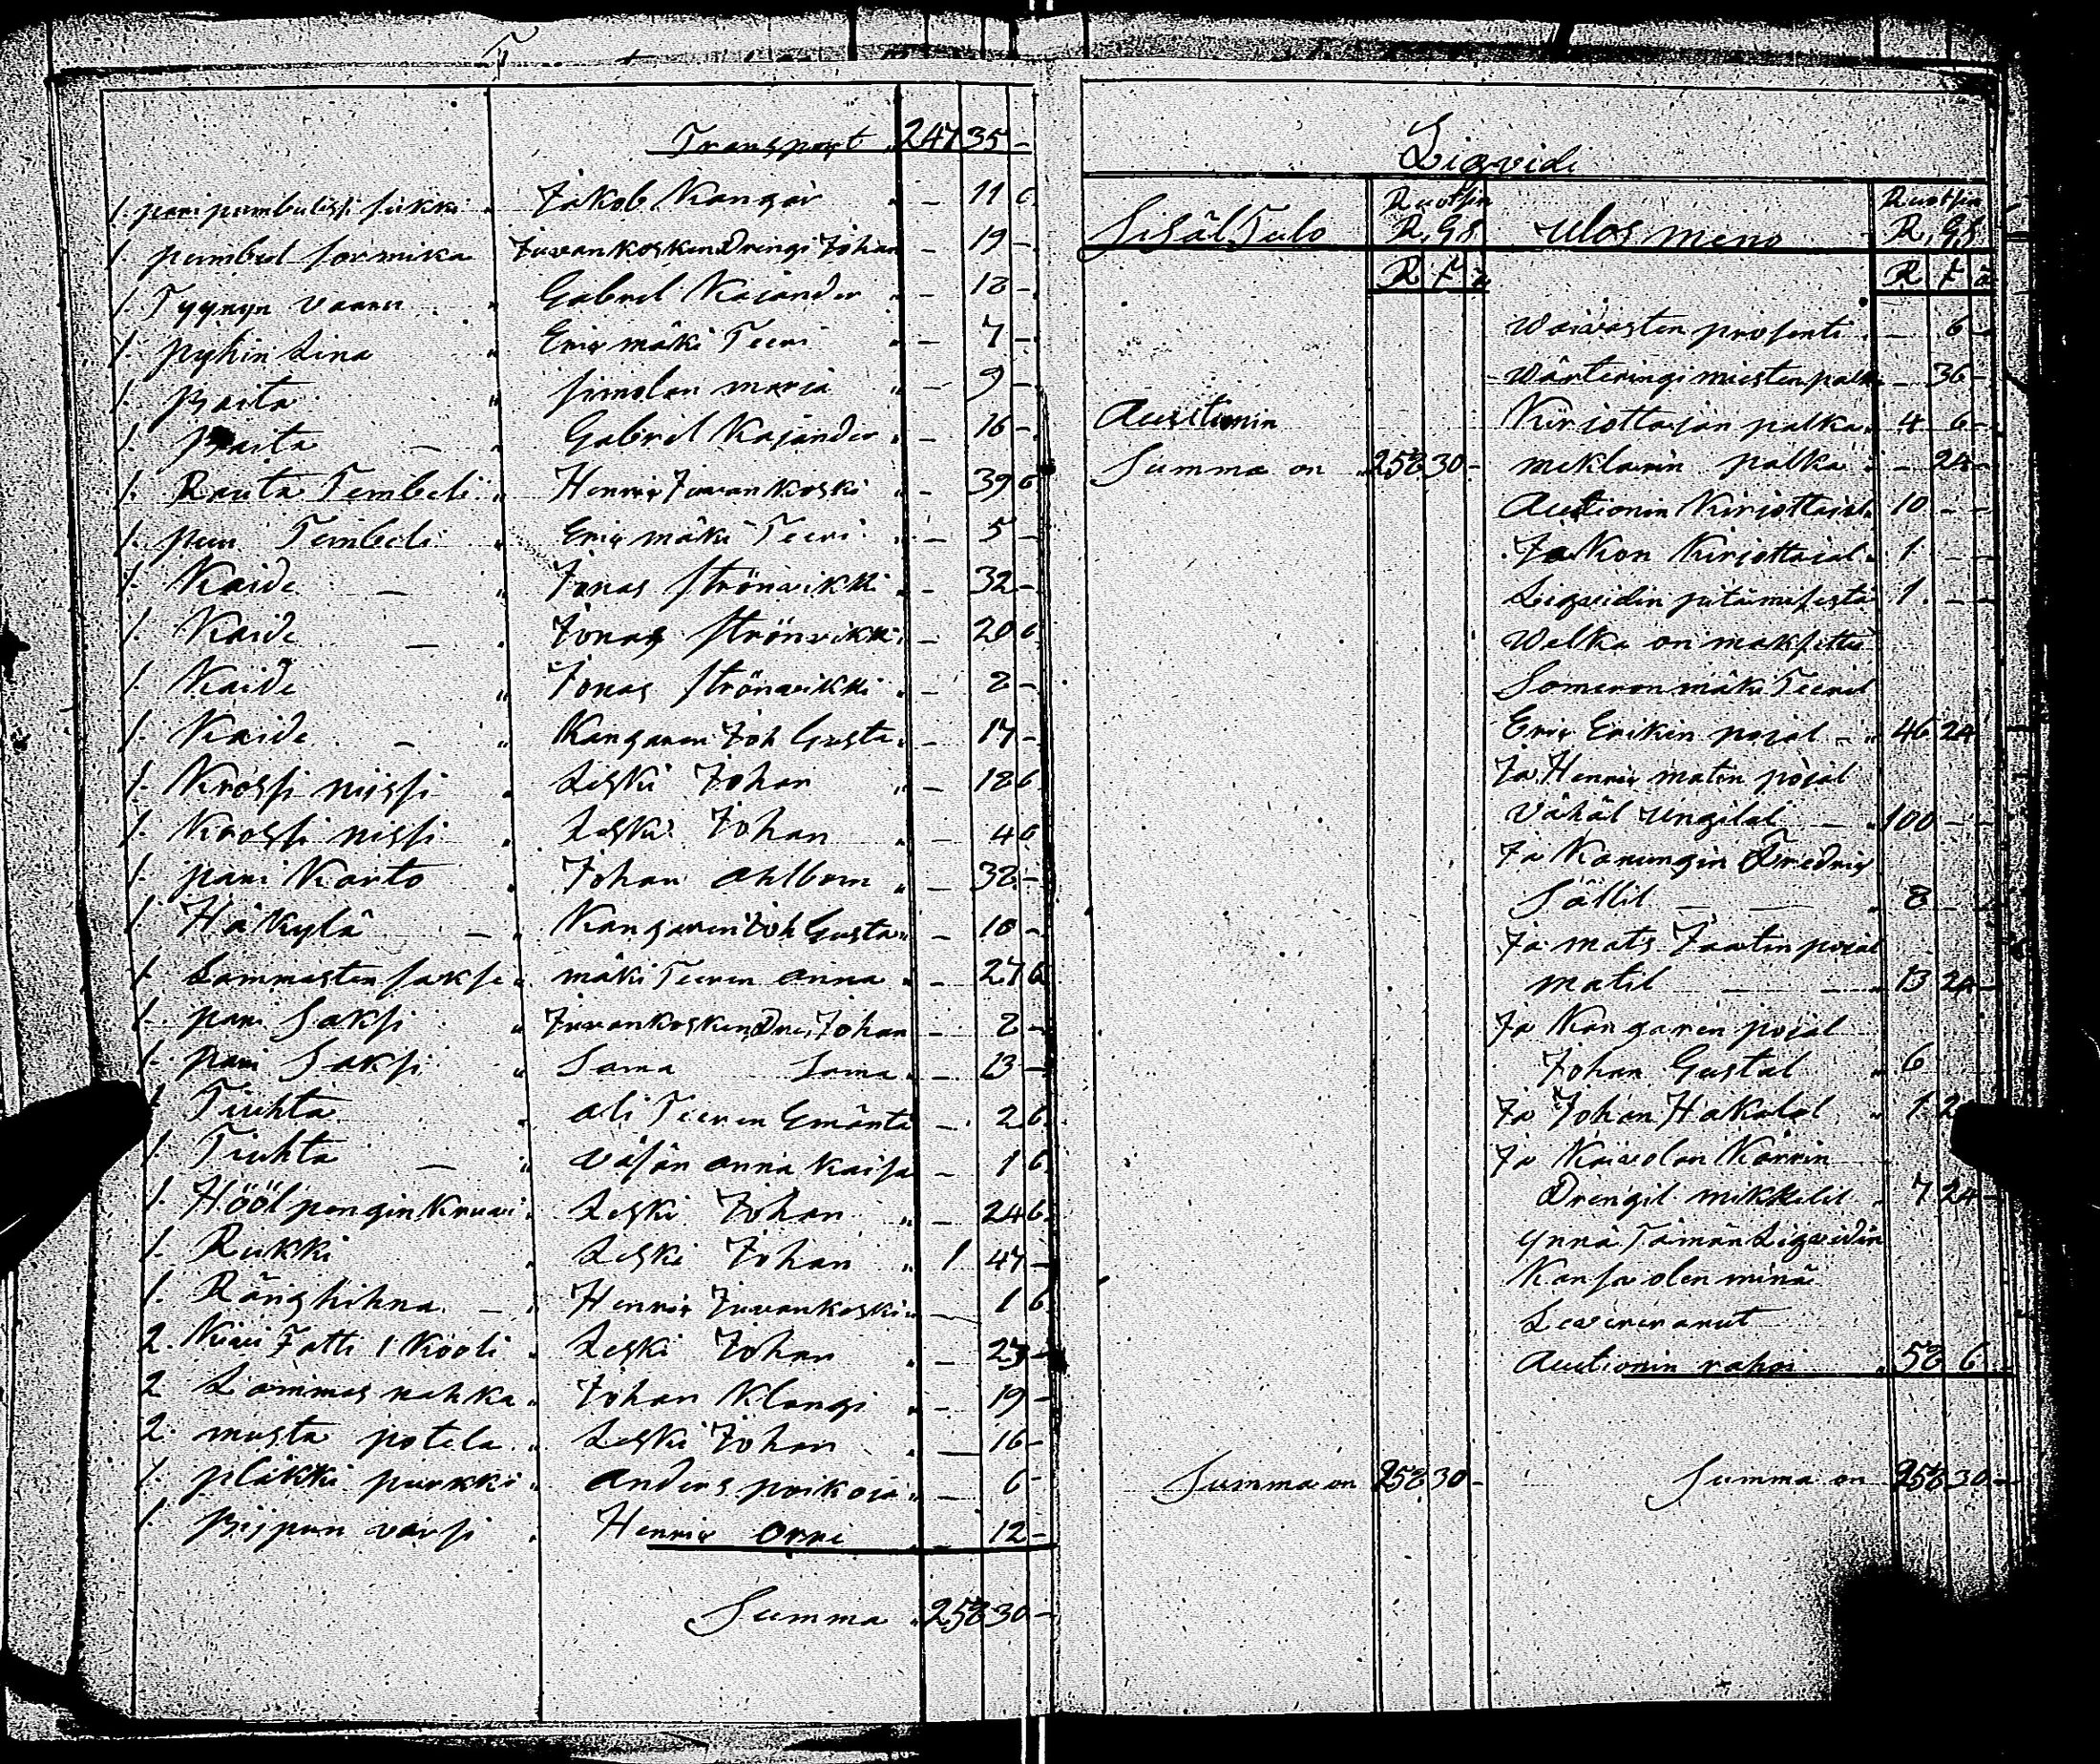 Transport " 247 35 -
1. pari pumbulissi sukki " Jakob Kangar " - 11 6
1 pumbul sormika Juvankosken Drengi Johan - 19 -
1. Tyynyn vaaru " Gabriel Kajander " - 18 -
1. pyhin Lina " Eriq mäki Teeri " - 7 -
1. paita " simolan maria " - 9 -
1. paita - " Gabriel Kajander " - 16 -
1. Rauta Tembeli " Henriq Juvankoski " - 39 6
1. puu Tembeli " Eriq mäki Teeri " - 5 -
1. Kaide - " Jonas strönvikki " - 32 -
1. Kaide - " Jonas strönvikki " - 20 6
1. Kaide " Jonas strönvikki " - 2 -
1. Kaide - " Kangaren Joh Gusta " - 17 -
1. Krossi niissi " Leski Johan " - 18 6
1. Krossi nissi " Leski Johan " - 4 6
1. pari Karto " Johan ahlbom " - 32 -
1. Häkylä - " Kangaren Joh Gusta " - 10 -
1. Lammasten sakse " mäki Teeren anna " - 27 6
1. pari Saksi " Juvankosken Dre, Johan - 2 -
1. pari Saksi " Sama Sama " - 13 -
1. Tiuhta " ali Teeren Emäntä - 2 6
1. Tiuhta - " väsän anna kaisa - 1 6
1. Höölpenginkruvi " Leski Johan " - 24 6
1. Rukki " Leski Johan " 1 47 -
1. Ränghihna - " Henriq Juvankoski " - 1 6
2. Kivi Fatti 1 Kooli " Leski Johan " - 27 -
2 Lammas nahka " Johan Klangi " - 19 -
2. musta potela " Leski Johan " - 16 -
1. pläkki purkki " anders poikoja " - 6 -
1. piipun varsi " Henriq orri - 12 -
Summa " 258 30 -
Liqvidi
Sisäl Tulo Ruotsin R, Gs Ulos meno Ruotsin R, Gs
R k ä R k ä
Waivasten prosenti - 6 -
Wärteringi miesten palk - 36 -
Auxtionin Kirjottajan palka 4 6 -
Summa on " 258 30 - meklarin palka " - 24 -
Auctionin Kirjottajal " 10 - -
Jakon Kirjottajal " 1 - -
Liqvidin pitämisestä 1 - -
Welka on maksettu
Someron mäki Teeril
Eriq Erikin pojal - " 46 24
Ja Henriq matin pojal
Vähäl Ungilal - " 100 - -
Ja Karungin Fredriq
Sällil - - " 8 - -
Ja mats Jaatin pojal
matil - - " 13 24 -
Ja Kangaren pojal
Johan Gustal " 6
Ja Johan Hakalal " 1 2
Ja Kaivolan Kärrin
Drengil mikkelil " 7 24 -
ynnä Tämän Liqvidin
Kansa olen minä
Leverernanut
Auctionin rahoi " 58 6 -
Summa on 258 30 - Summa on 258 30 -